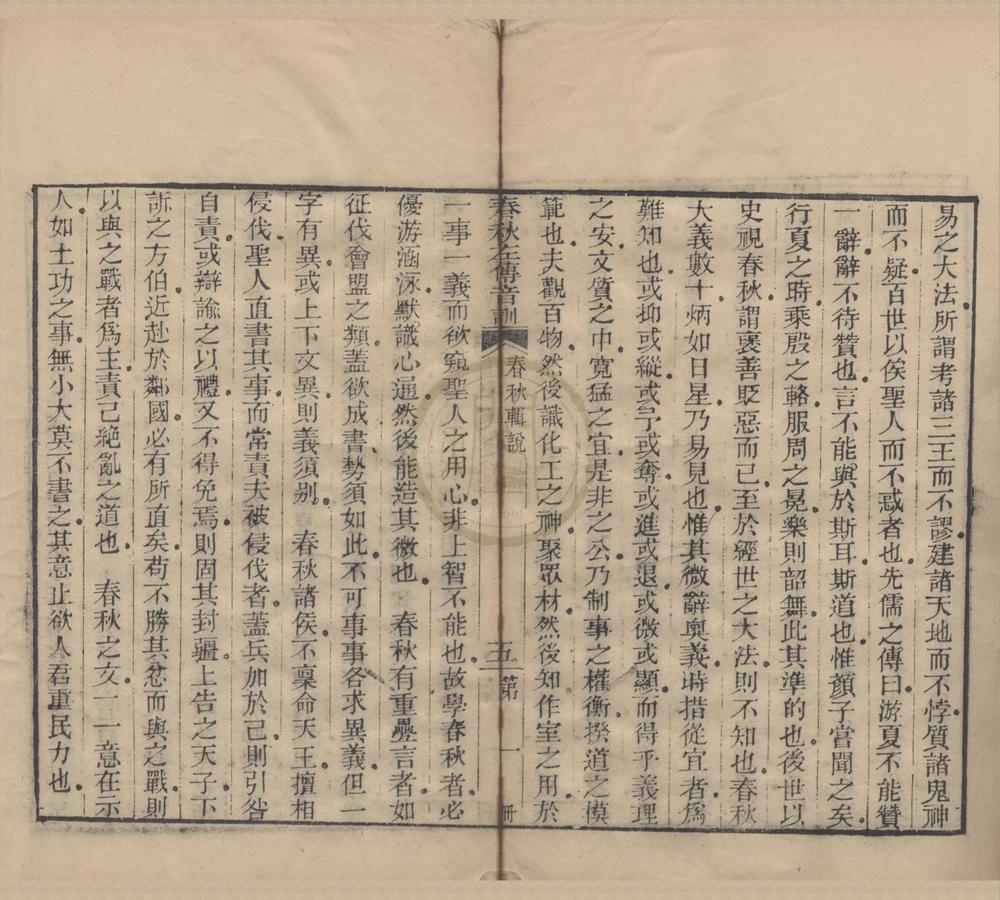 易之大法所謂考諸三王而不謬建諸天地而不悖質諸鬼神
而不疑百世以俟聖人而不惑者也先儒之傳曰游夏不能贊
一辭辭不待贊也言不能與於斯耳斯道也惟顏子嘗聞之矣
行夏之時乘殷之輅服周之冕樂則韶舞此其準的也後世以
史視春秋謂襃善貶惡而已至於經世之大法則不知也春秋
大義數十炳如日星乃易見也惟其微辭奧義時措從宜者爲
難知也或抑或縱或予或奪或進或退或微或顯而得乎義理
之安文質之中寬猛之宜是非之公乃制事之權衡揆道之模
範也夫觀百物然後識化工之神聚眾材然後知作室之用於
春秋左傳音訓 春秋輯說 五 第一冊
一事一義而欲窺聖人之用心非上智不能也故學春秋者必
優游涵泳默識心通然後能造其微也 春秋有重疊言者如
征伐會盟之類蓋欲成書勢須如此不可事事各求異義但一
字有異或上下文異則義須别 春秋諸侯不稟命天王擅相
侵伐聖人直書其事而常責夫被侵伐者蓋兵加於己則引咎
自責或辯諭之以禮又不得免焉則固其封疆上告之天子下
訴之方伯近赴於鄰國必有所直矣苟不勝其忿而與之戰則
以與之戰者爲主責己絶亂之道也 春秋之文一一意在示
人如土功之事無小大莫不書之其意止欲人君重民力也